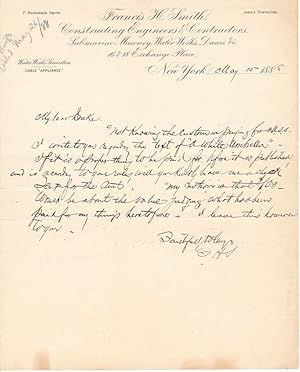 F. Hopkinson Smith.
James Symington.
Francis H. Smith,
Constructing Engineers & Contractors.
Submarine Masonry, Water Works, Dams, &c.
16 & 18 Exchange Place,
Water Works Lancaster
Cable "Appliance."
May 26/88
New York, May 15 1888
My dear
"Not knowing the custom in paying for
I write to you regarding the text of "A White Umbrella" -
If it is proper thing to be paid for before it is published
and is according to your rules will you kindly have me a check
sent for the amt. My notion is that
would be about the value judging what has been
paid for my things heretofore - I leave this however
to you -
Faithfully Yours
FHS